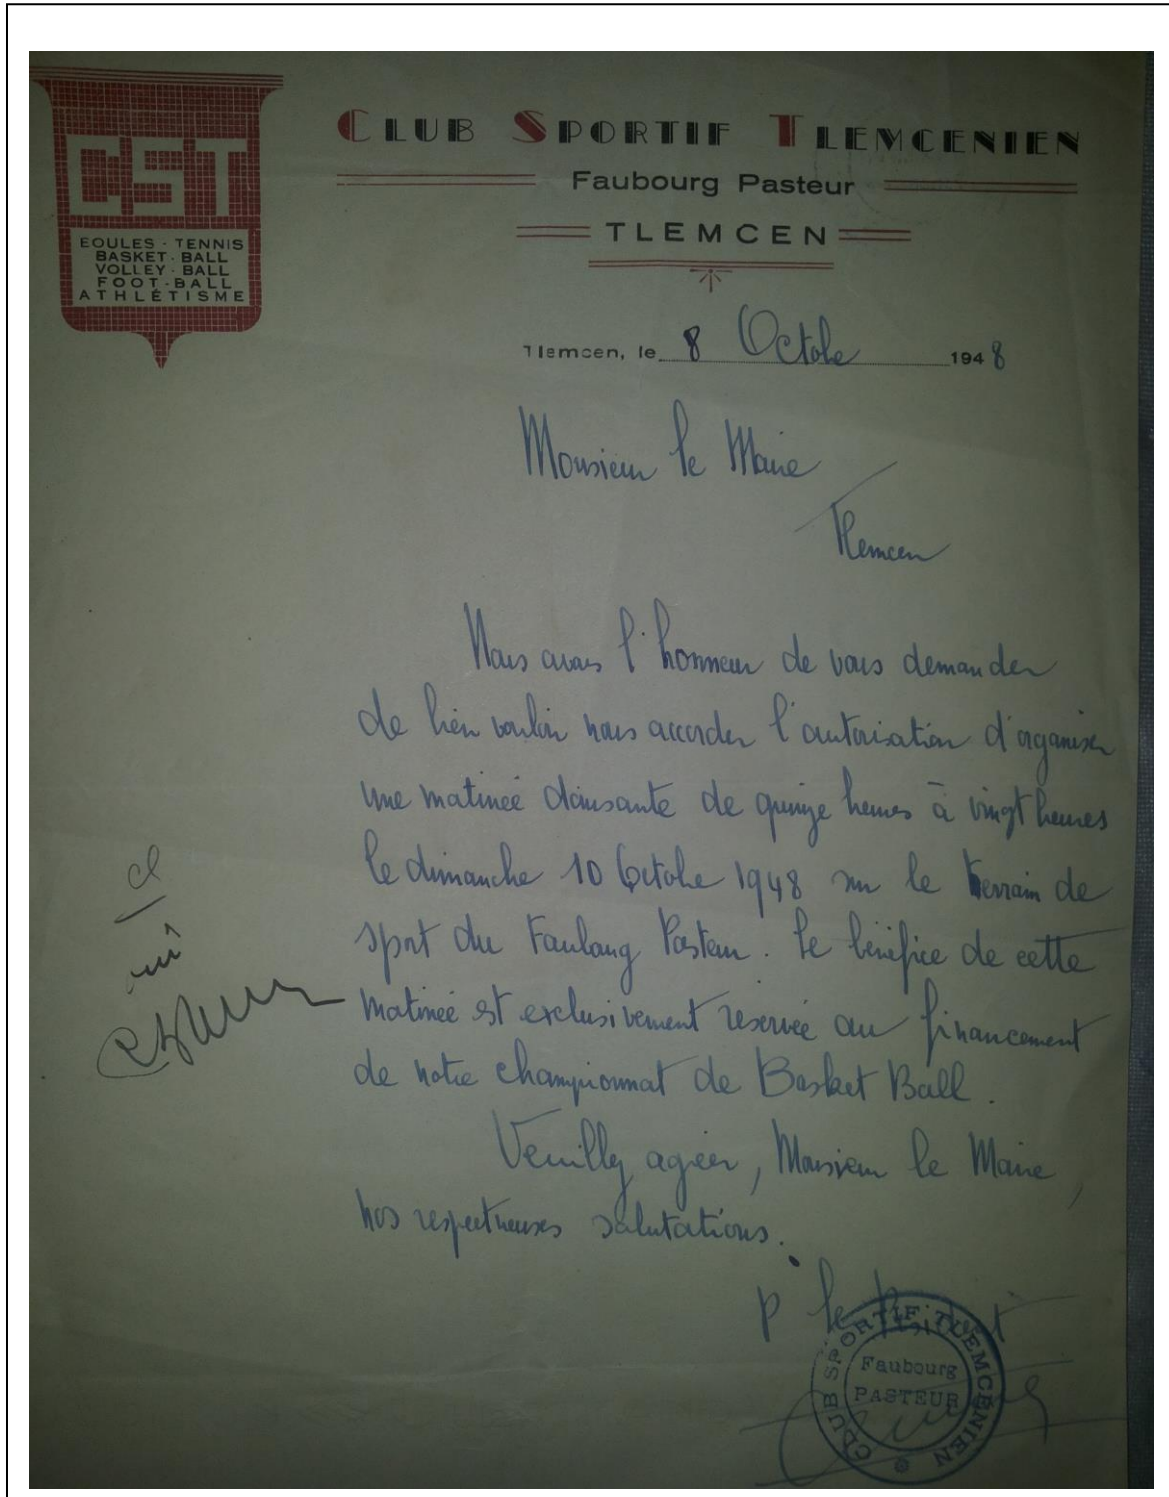 CST
BOULES - TENNIS
BASKET - BALL
VOLLEY - BALL
FOOT - BALL
ATHLÉTISME
CLUB SPORTIF TLEMCENIEN
Faubourg Pasteur
TLEMCEN
Tlemcen, le 8 Octobre 1948
Monsieur le Maire
Tlemcen
Nous avons l'honneur de vous demander
de bien vouloir nous accorder l'autorisation d'organiser
une matinée dansante de quinze heures à vingt heures
le dimanche 10 Octobre 1948 sur le terrain de
sport du Faubourg Pasteur. Le bénéfice de cette
matinée est exclusivement réservée au financement
de notre championnat de Basket Ball.
Veuillez agréer, Monsieur le Maire,
nos respectueuses salutations.
oui
P. le
CLUB SPORTIF TLEMCENIEN
Faubourg
PASTEUR